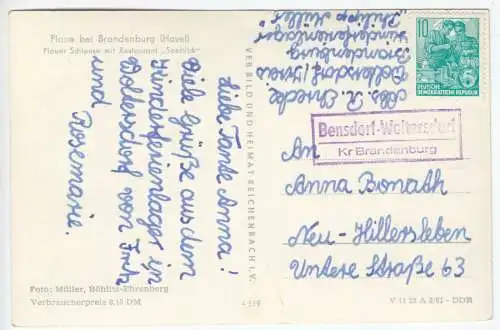 Plaue bei Brandenburg (Havel)
Plauer Schleuse mit Restaurant „Seeblick"
Liebe Tante Anna!
Viele Grüße aus dem
Kinderferienlager in
Woltersdorf von Fritz
und Rosemarie.
Foto: Müller, Böhlitz-Ehrenberg
Verbraucherpreis 0,15 DM
VEB BILD UND HEIMAT REICHENBACH I. V.
Abs. R. Ehrecke
Woltersdorf/Kreis
Brandenburg
Kinderferienlager
"Philipp Müller"
10
DEUTSCHE
DEMOKRATISCHE REPUBLIK
Bensdorf-Woltersdorf
Kr Brandenburg
An
Anna Bonath
Neu-Hillersleben
Untere Straße 63